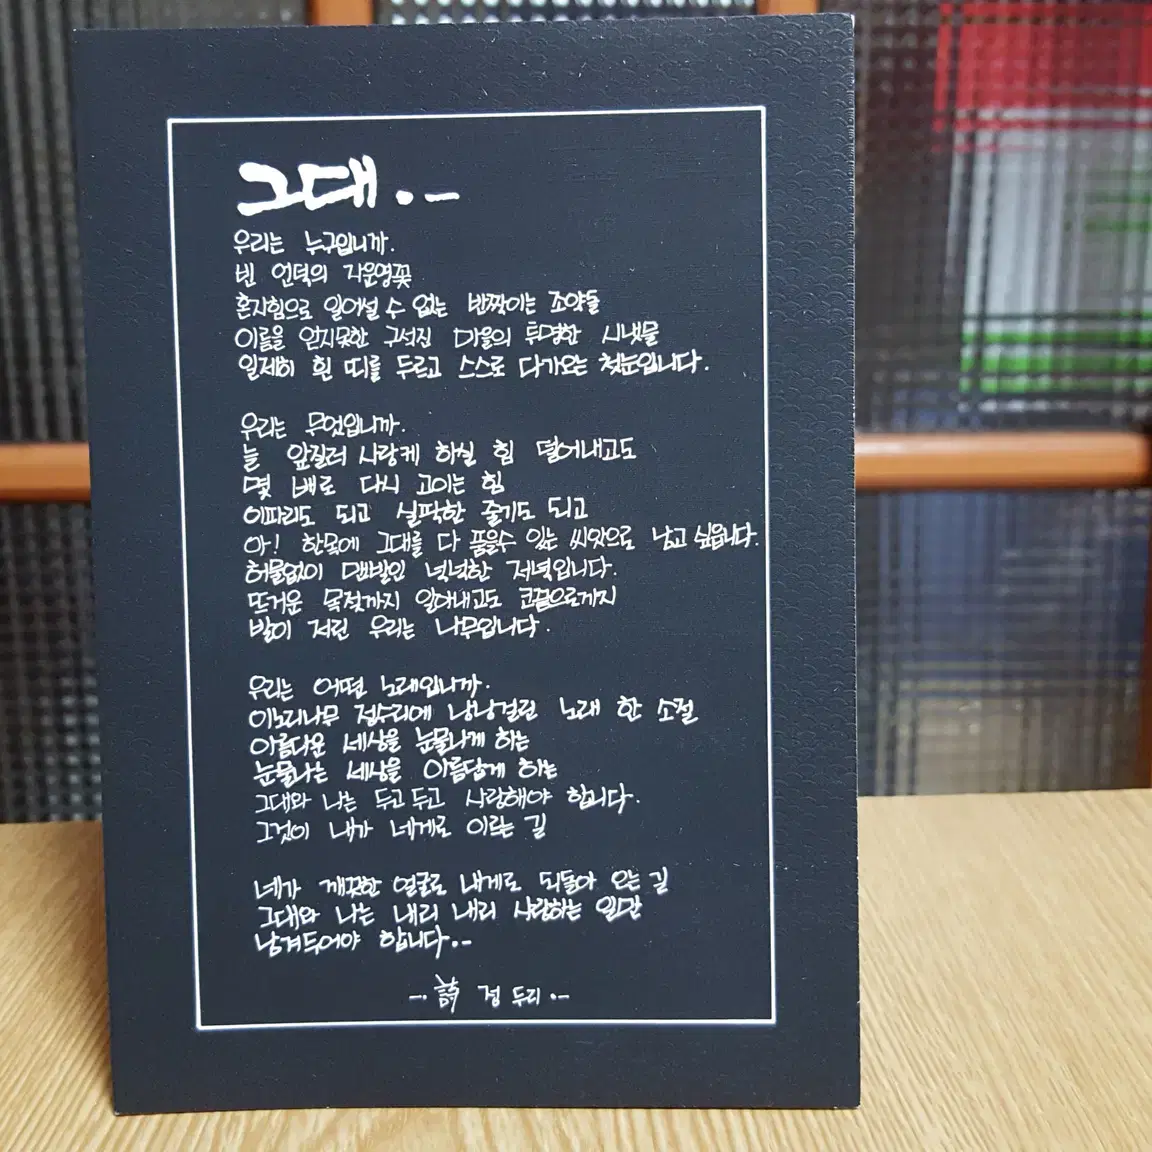 그대.-
우리는 누구입니까.
빈 언덕의 자운영꽃
혼자힘으로 일어설 수 없는 반짝이는 조약돌
이름을 얻지못한 구석진 마을의 투명한 시냇물
일제히 흰 띠를 두르고 스스로 다가오는 첫눈입니다.
우리는 무엇입니까.
늘 앞질러 사랑케 하실 힘 덜어내고도
몇 배로 다시 고이는 힘
이파리도 되고 실팍한 줄기도 되고
아! 한몫에 그대를 다 품을수 있는 씨앗으로 남고 싶습니다.
허물없이 맨발인 넉넉한 저녁입니다.
뜨거운 목젖까지 알아내고도 코끝으로까지
발이 저린 우리는 나무입니다.
우리는 어떤 노래입니까.
이노리나무 정수리에 낭낭걸린 노래 한 소절
아름다운 세상을 눈물나게 하는
눈물나는 세상을 아름답게 하는
그대와 나는 두고두고 사랑해야 합니다.
그것이 내가 네게로 이르는 길
네가 깨끗한 얼굴로 내게로 되돌아 오는 길
그대와 나는 내리 내리 사랑하는 일만
남겨두어야 합니다..
-. 詩 정두리 .-